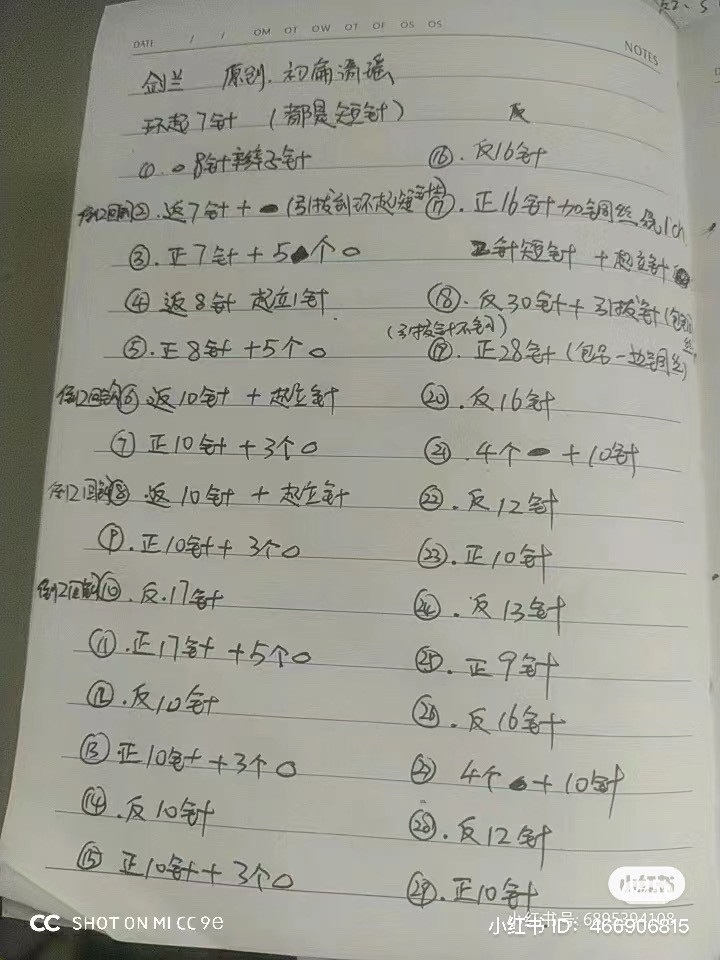 DATE / / OM OT OW OT OF OS OS
NOTES
剑兰 原创.初痛清瑶
环起7针 (都是短针)
①.○8针辫子针
倒2回钩②.返7针+ (引拔到环起短针上
③.正7针+5个○
④返8针 起立1针
⑤.正8针+5个○
倒2回钩⑥.返10针+起立针
⑦正10针+3个○
倒2回钩⑧.返10针+起立针
⑨.正10针+3个○
倒2回钩⑩.反.17针
⑪.正17针+5个○
⑫.反10针
⑬正10针+3个○
⑭.反10针
⑮正10针+3个○
反
⑯.反16针
⑰.正16针加铜丝绕1ch
2针短针+起立针
⑱.反30针+引拔针(包铜丝
(引拔针不钩)
⑲.正28针(包另一边铜丝)
⑳.反16针
㉑.4个 +10针
㉒.反12针
㉓.正10针
㉔.反13针
㉕.正9针
㉖.反16针
㉗ 4个 +10针
㉘.反12针
㉙.正10针
小红书
小红书号: 6895394108
小红书 ID: 466906815
CC SHOT ON MI CC 9e